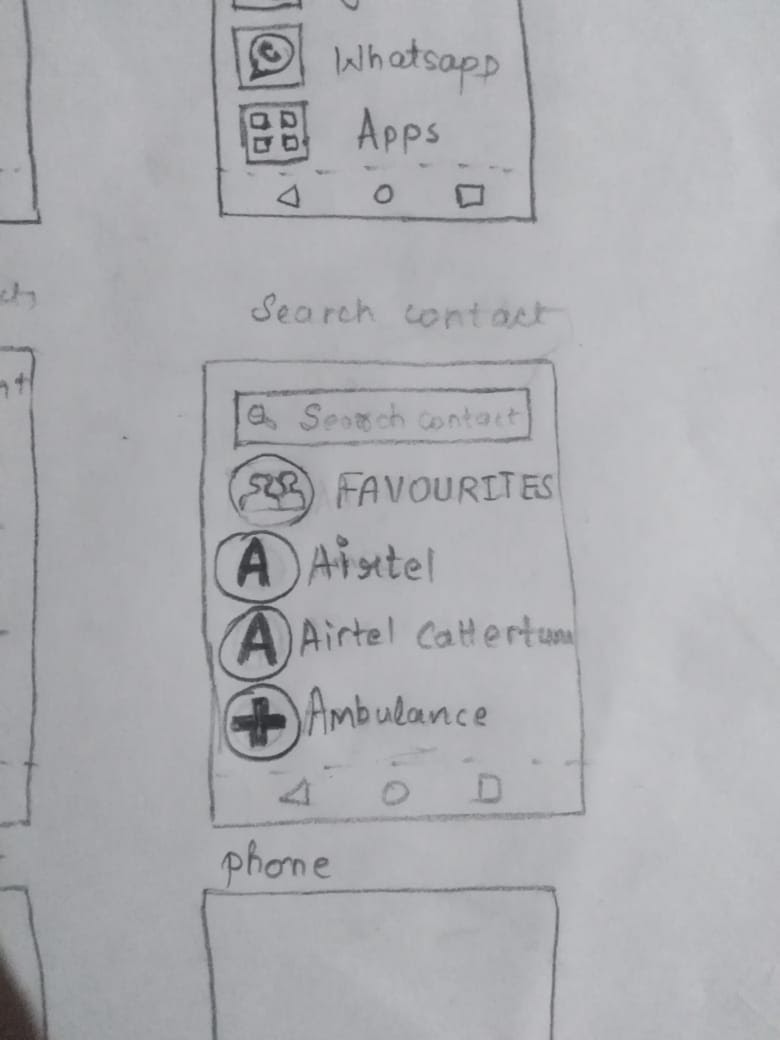 Whatsapp
Apps
Search contact
Search contact
FAVOURITES
A Airtel
A Airtel
Ambulance
phone